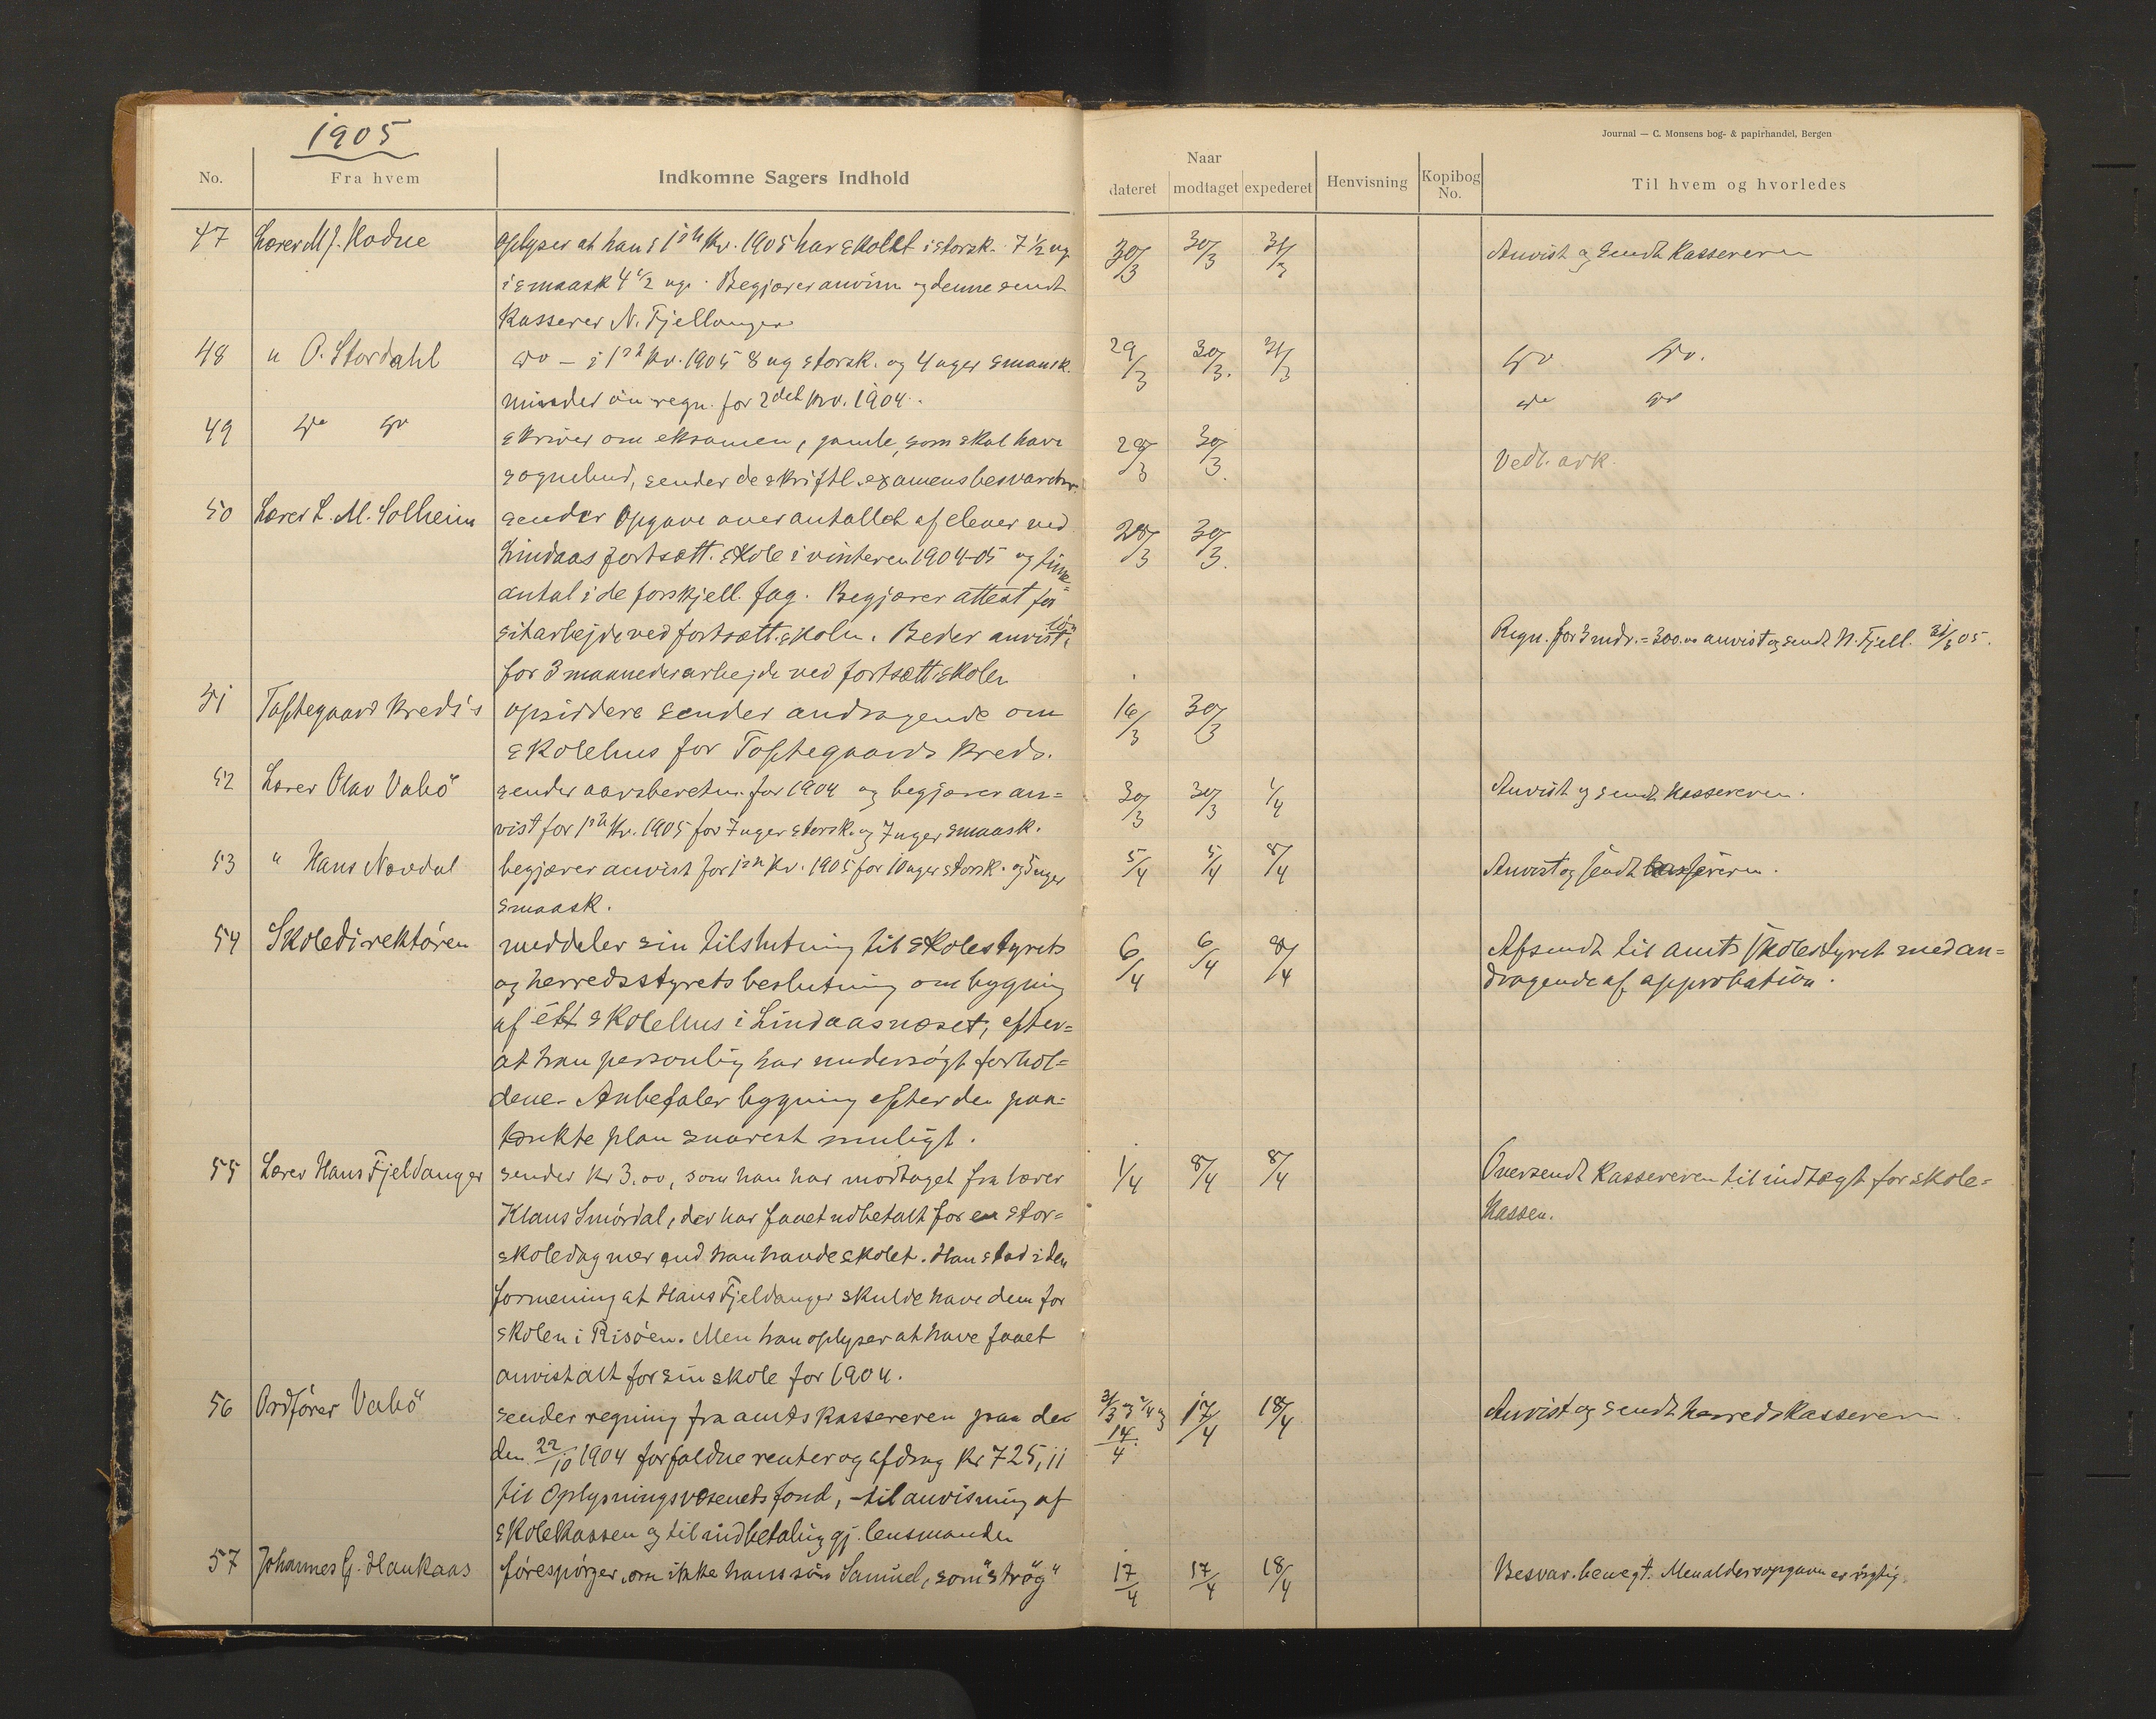 1905
No.
Fra hvem
Indkomne Sagers Indhold
47 Lærer M. J. Kodne oplyser at han i 1ste Kv. 1905 har skolet i storsk. 7 1/2 ug
i smaask 4 1/2 uge. Begjærer anvisn og denne sendt
Kasserer N. Fjellanger
48 " O. Stordahl do — i 1ste Kv. 1905 8 ug storsk. og 4 uger smaask.
minder om regn. for 2det kv. 1904.
49 do do skriver om eksamen, gamle, som skal have
sognebud, sender de skriftl. examensbesvarelser.
50 Lærer L. M. Solheim sender Opgave over antallet af elever ved
Lindaas fortsætt. skole i vinteren 1904-05 og time=
antal i de forskjell. fag. Begjærer attest for
sit arbejde ved fortsætt. skolen. Beder anvist løn
for 3 maaneders arbejde ved fortsætt skolen
51 Toftegaard Kreds's opsiddere sender andragende om
skolehus for Toftegaards kreds.
52 Lærer Olav Vabö sender aarsberetn. for 1904 og begjærer an=
vist for 1ste Kv. 1905 for 7 uger storsk. og 7 uger smaask.
53 " Hans Nævdal begjærer anvist for 1ste Kv. 1905 for 10 uger storsk. og 5 uger
smaask.
54 Skoledirektören meddeler sin tilslutning til skolestyrets
og herredsstyrets beslutning om bygning
af ét skolehus i Lindaasneset, efter=
at han personlig har undersøgt forhol=
dene. Anbefaler bygning efter den paa=
tænkte plan snarest muligt.
55 Lærer Hans Fjeldanger sender Kr 3.00, som han har modtaget fra lærer
Klaus Smördal, der har faaet udbetalt for en stor=
skoledag mer end han havde skolet. Han stod i den
formening at Hans Fjeldanger skulde have dem for
skolen i Risöen. Men han oplyser at have faaet
anvist alt for sin skole for 1904.
56 Ordförer Vabö sender regning fra amtskassereren paa de
den 22/10 1904 forfaldne renter og afdrag Kr 725,11
til Oplysningsvæsenets fond, - til anvisning af
skolekassen og til indbetaling gj. lensmanden
57 Johannes G. Haukaas förespörger, om ikke hans sön Samuel, som "strög"
Journal — C. Monsens bog- & papirhandel, Bergen
Naar
dateret modtaget expederet
Henvisning
Kopibog
No.
Til hvem og hvorledes
30/3 30/3 31/3 Anvist og sendt Kassereren
29/3 30/3. 31/3 do do.
do do
29/3 30/3. Vedl. ark.
28/3 30/3.
Regn. for 3 mdr. = 300.00 anvist og sendt N. Fjell. 31/3 05.
16/3 30/3
30/3 30/3 1/4 Anvist og sendt kassereren.
5/4 5/4 8/4 Anvist og sendt kassereren.
6/4 6/4 8/4 Afsendt til amtsskolestyret med an=
dragende af approbation.
1/4 8/4 8/4 Oversendt Kassereren til indtægt for skole=
kassen.
31/3 og 4/4 og 14/4 17/4 18/4 Anvist og sendt herredskassereren
17/4 17/4 18/4 Besvar. benegt. Men aldersopgaven er rigtig.